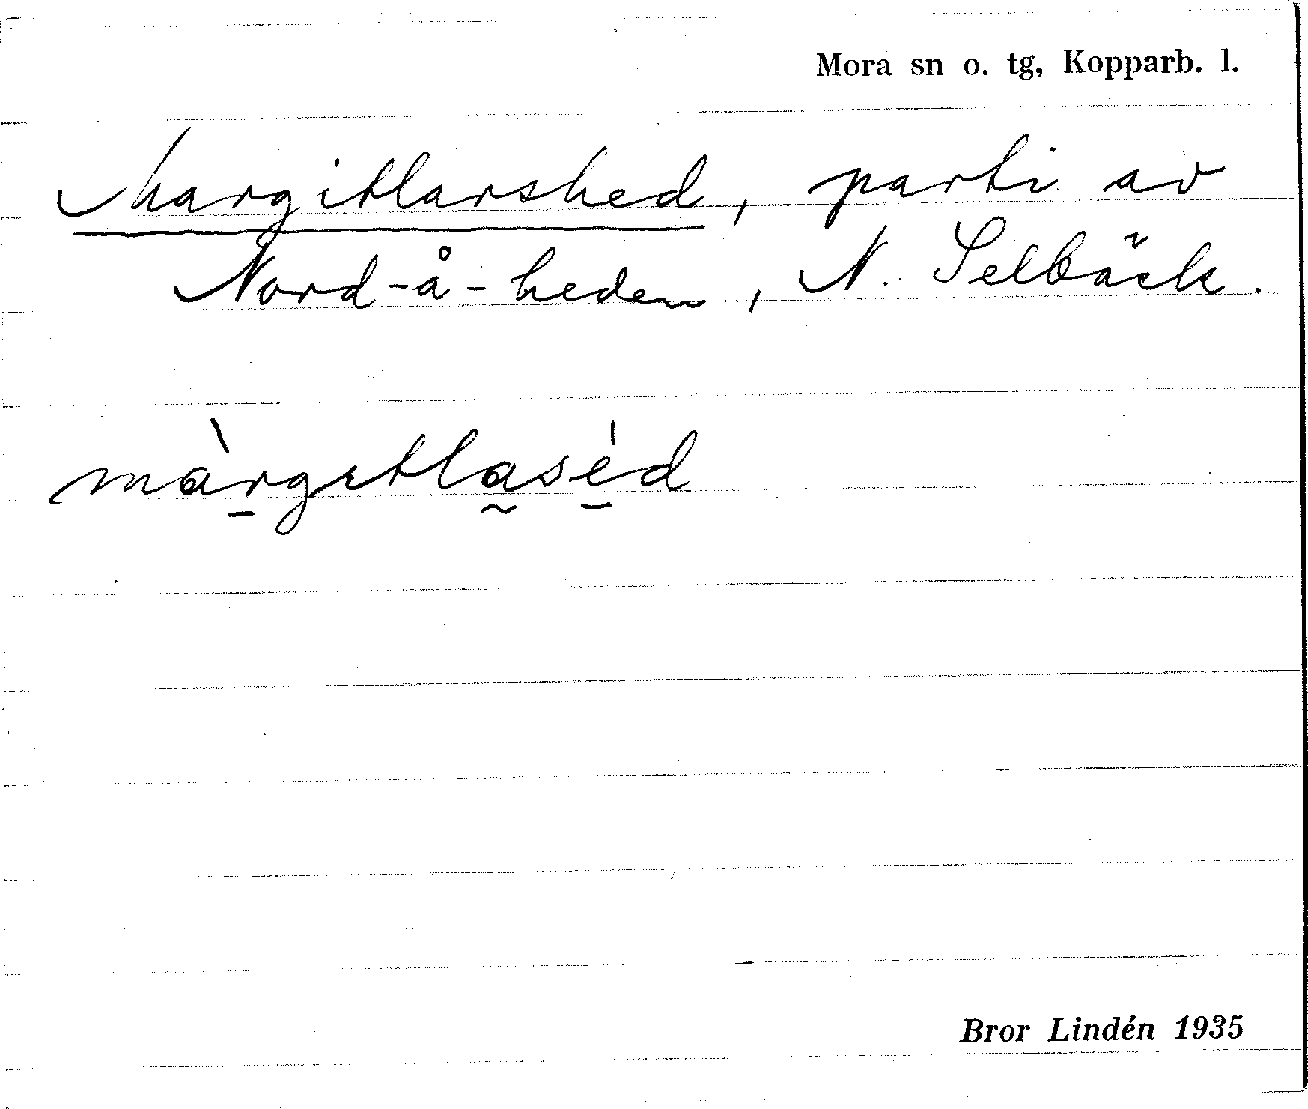 Mora sn o. tg, Kopparb. l.
Margitlarshed, parti av
Nord-å-heden, N. Selbäck.
màrgɩtlaséd
Bror Lindén 1935